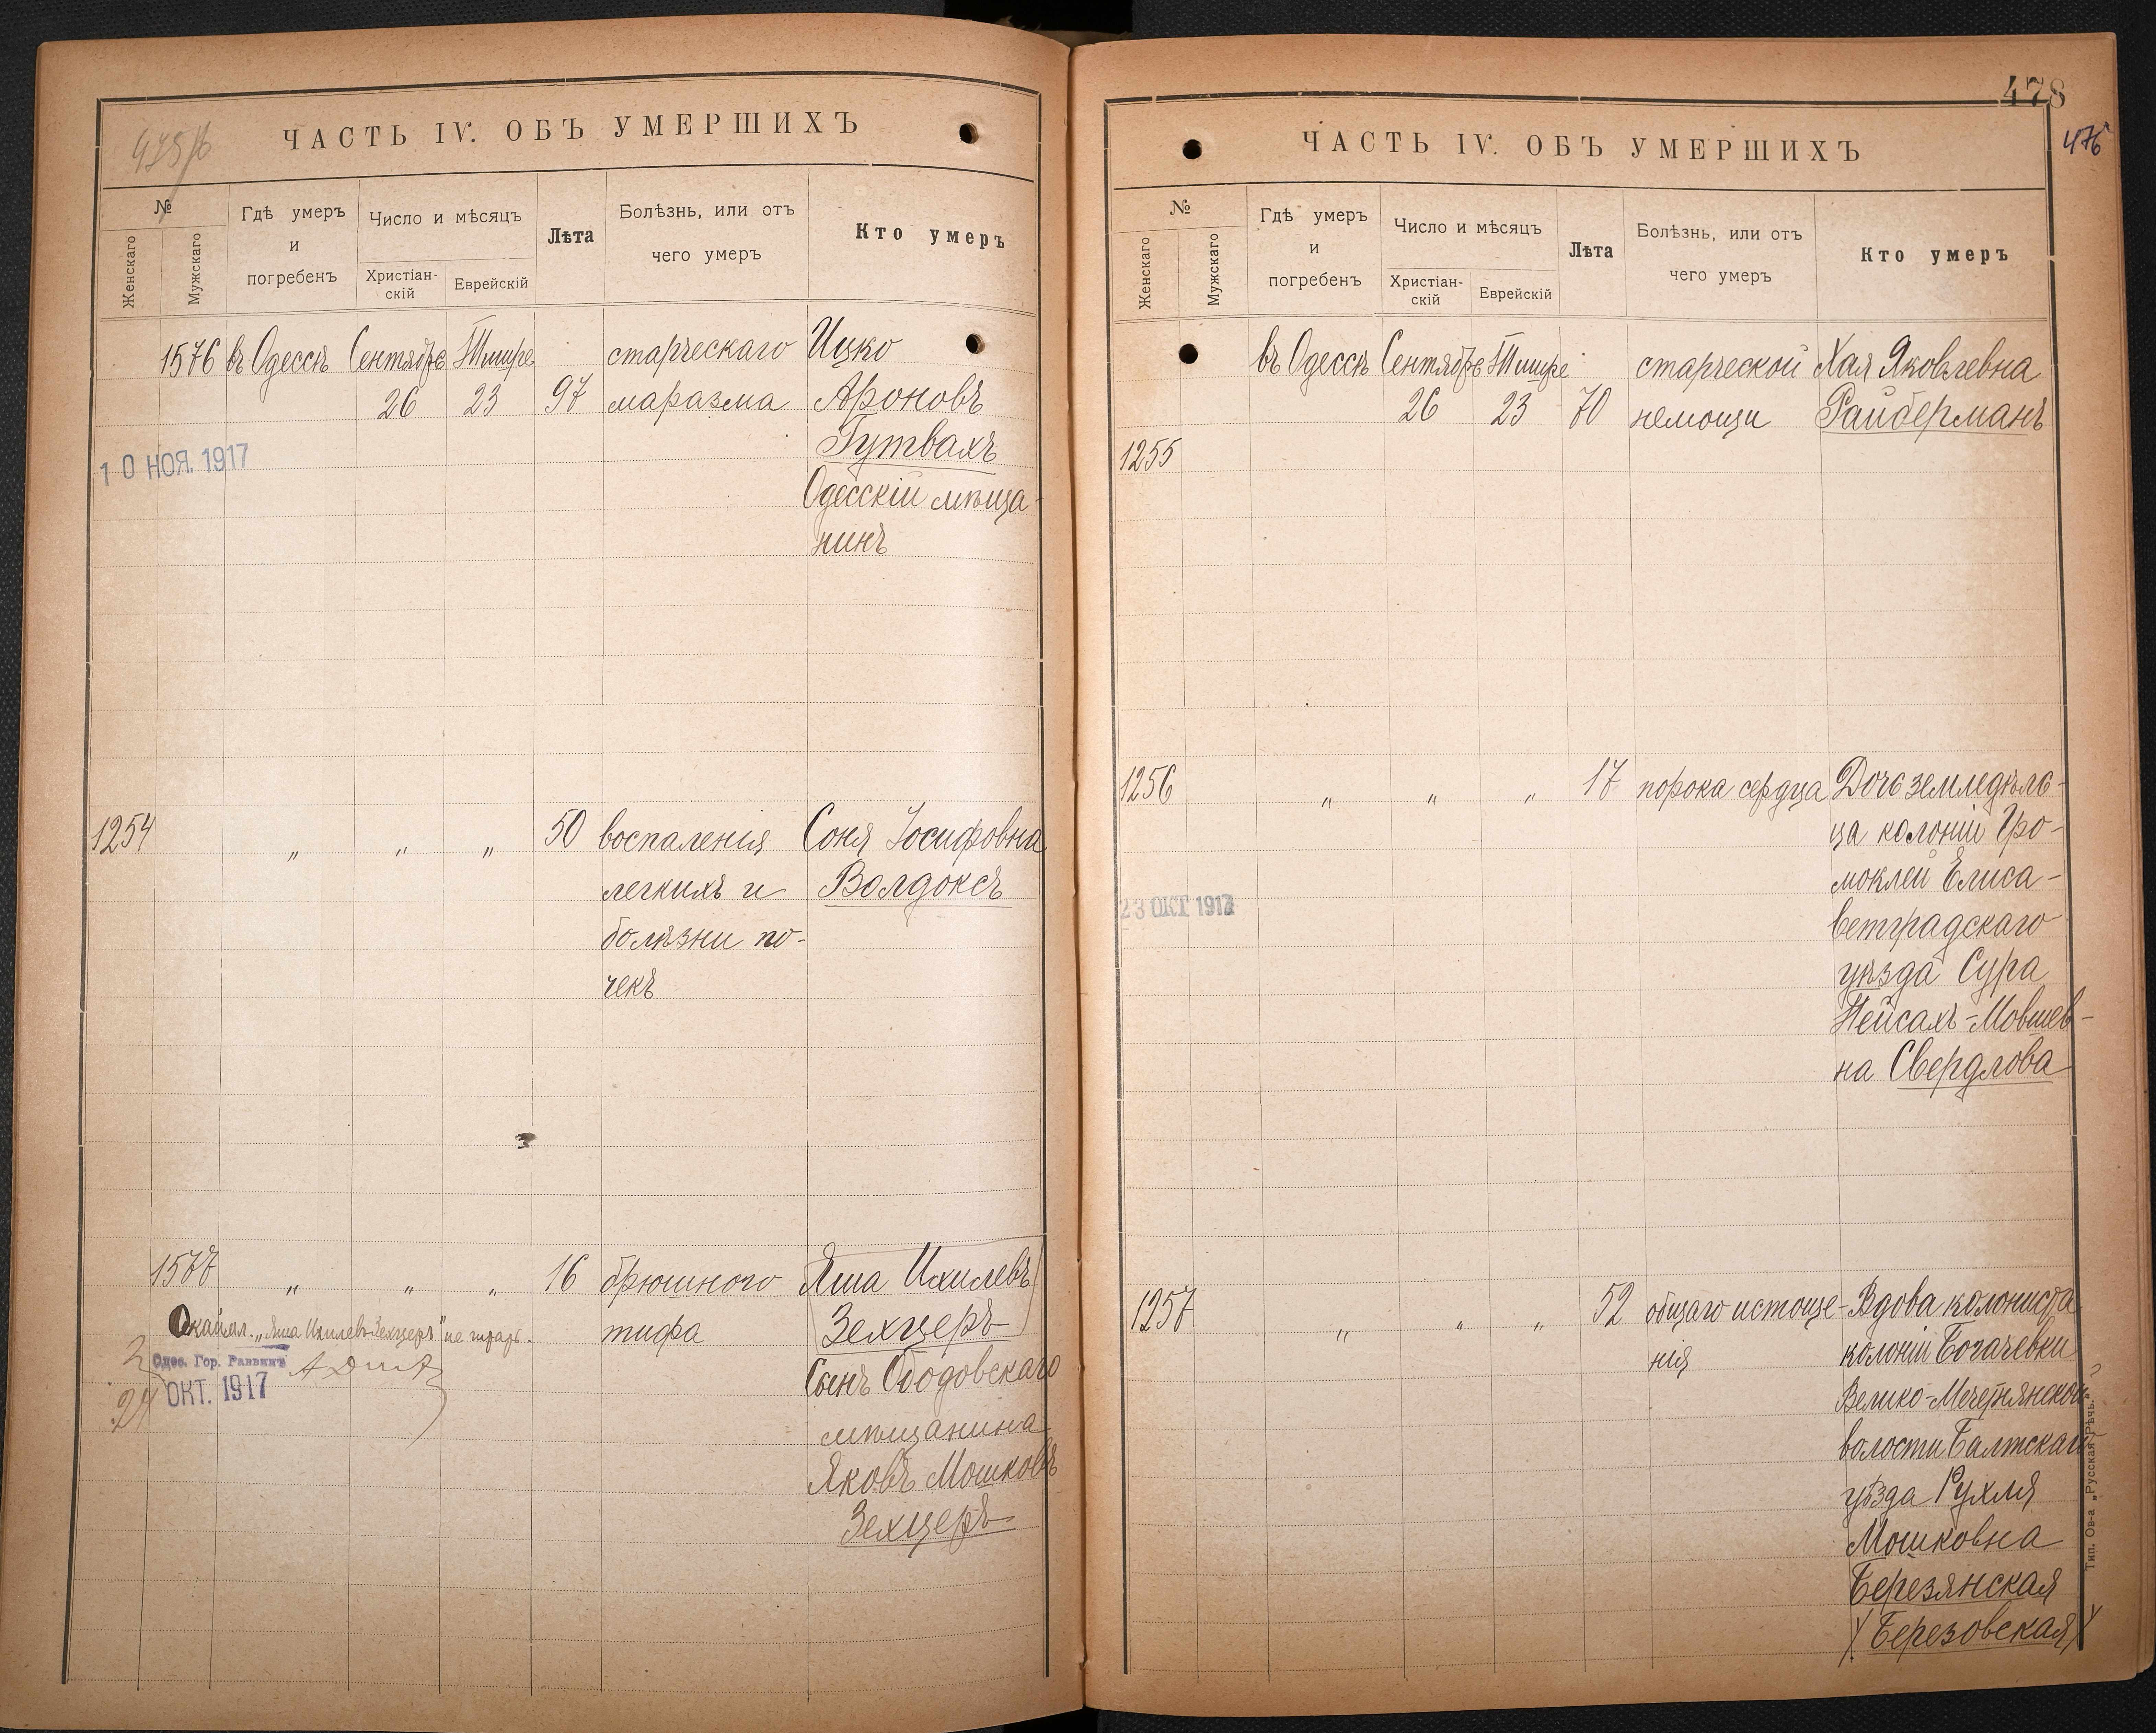 475 об
ЧАСТЬ IV. ОБЪ УМЕРШИХЪ
№
Женскаго
Мужскаго
Гдѣ умеръ
и
погребенъ
Число и мѣсяцъ
Христіан-
скій
Еврейскій
Лѣта
Болѣзнь, или отъ
чего умеръ
Кто умеръ
1576 въ Одессѣ Сентября Тишре старческаго Ицко
26 23 97 маразма Ароновъ
Гутвахъ
10 НОЯ. 1917
Одесскій мѣща-
нинъ
1254 " " " 50 воспаленія Соня Іосифовна
легкихъ и Волдоксъ
болѣзни по-
чекъ
1577 " " " 16 брюшного (Яша Ихилевъ
тифа Зехцеръ)
"Яша Ихилевъ Зехцеръ" не
Одес. Гор. Раввинъ
Сынъ Ободовскаго
ОКТ. 1917
24
мѣщанина
Яковъ Мошковъ
Зехцеръ
478
476
ЧАСТЬ IV. ОБЪ УМЕРШИХЪ
№
Женскаго
Мужскаго
Гдѣ умеръ
и
погребенъ
Число и мѣсяцъ
Христіан-
скій
Еврейскій
Лѣта
Болѣзнь, или отъ
чего умеръ
Кто умеръ
въ Одессѣ Сентября Тишре старческой Хая Яковлевна
26 23 70 немощи Райберманъ
1255
1256 " " " 17 порока сердца Дочь земледѣль-
ца колоніи Гро-
моклеи Елиса-
23 ОКТ 1917
ветградскаго
уѣзда Сура
Пейсахъ-Мовшев-
на Свердлова
1257 " " " 52 общаго истоще- Вдова колониста
нія колоніи Богачевки
Велико-Мечетнянской
волости Балтскаго
уѣзда Рухля
Мошковна
Березянская
(Березовская)
Тип. Ов-а „Русская Рѣчь."